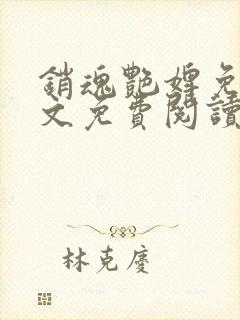 銷魂艷婢免
文免費閱讀
林克慶